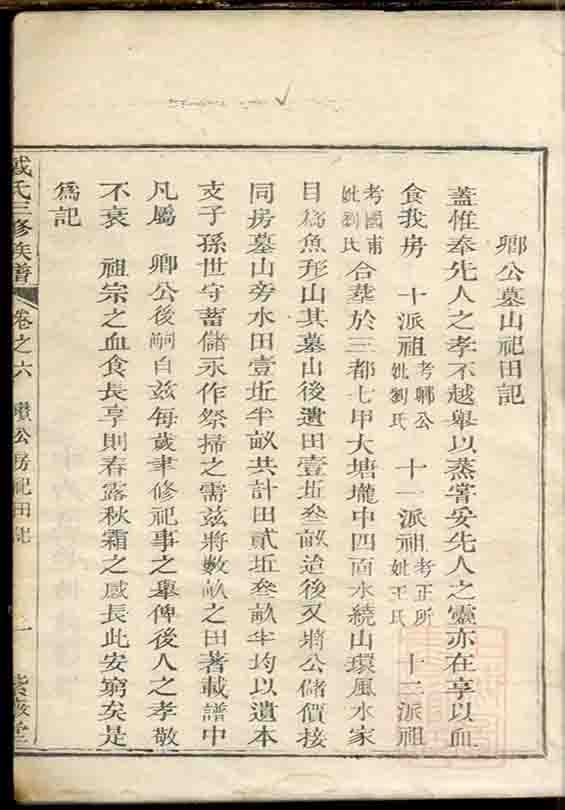 卿公墓山祀田記
蓋惟奉先人之孝不越舉以蒸嘗妥先人之靈亦在享以血
食我房 十派祖考卿公妣劉氏 十一派祖考正所妣王氏 十二派祖
考國甫妣劉氏合葬於三都七甲大塘壠中四面水繞山環風水家
目為魚形山其墓山後遺田壹坵叁畝迨後又將公儲價接
同房墓山旁水田壹坵半畝共計田貳坵叁畝半均以遺本
支子孫世守蓄儲永作祭掃之需茲將數畝之田著載譜中
凡屬 卿公後嗣自茲每歲聿修祀事之舉俾後人之孝敬
不衰 祖宗之血食長享則春露秋霜之感長此安窮矣是
為記
戴氏三修族譜 卷之六 公房祀田記 一 堂